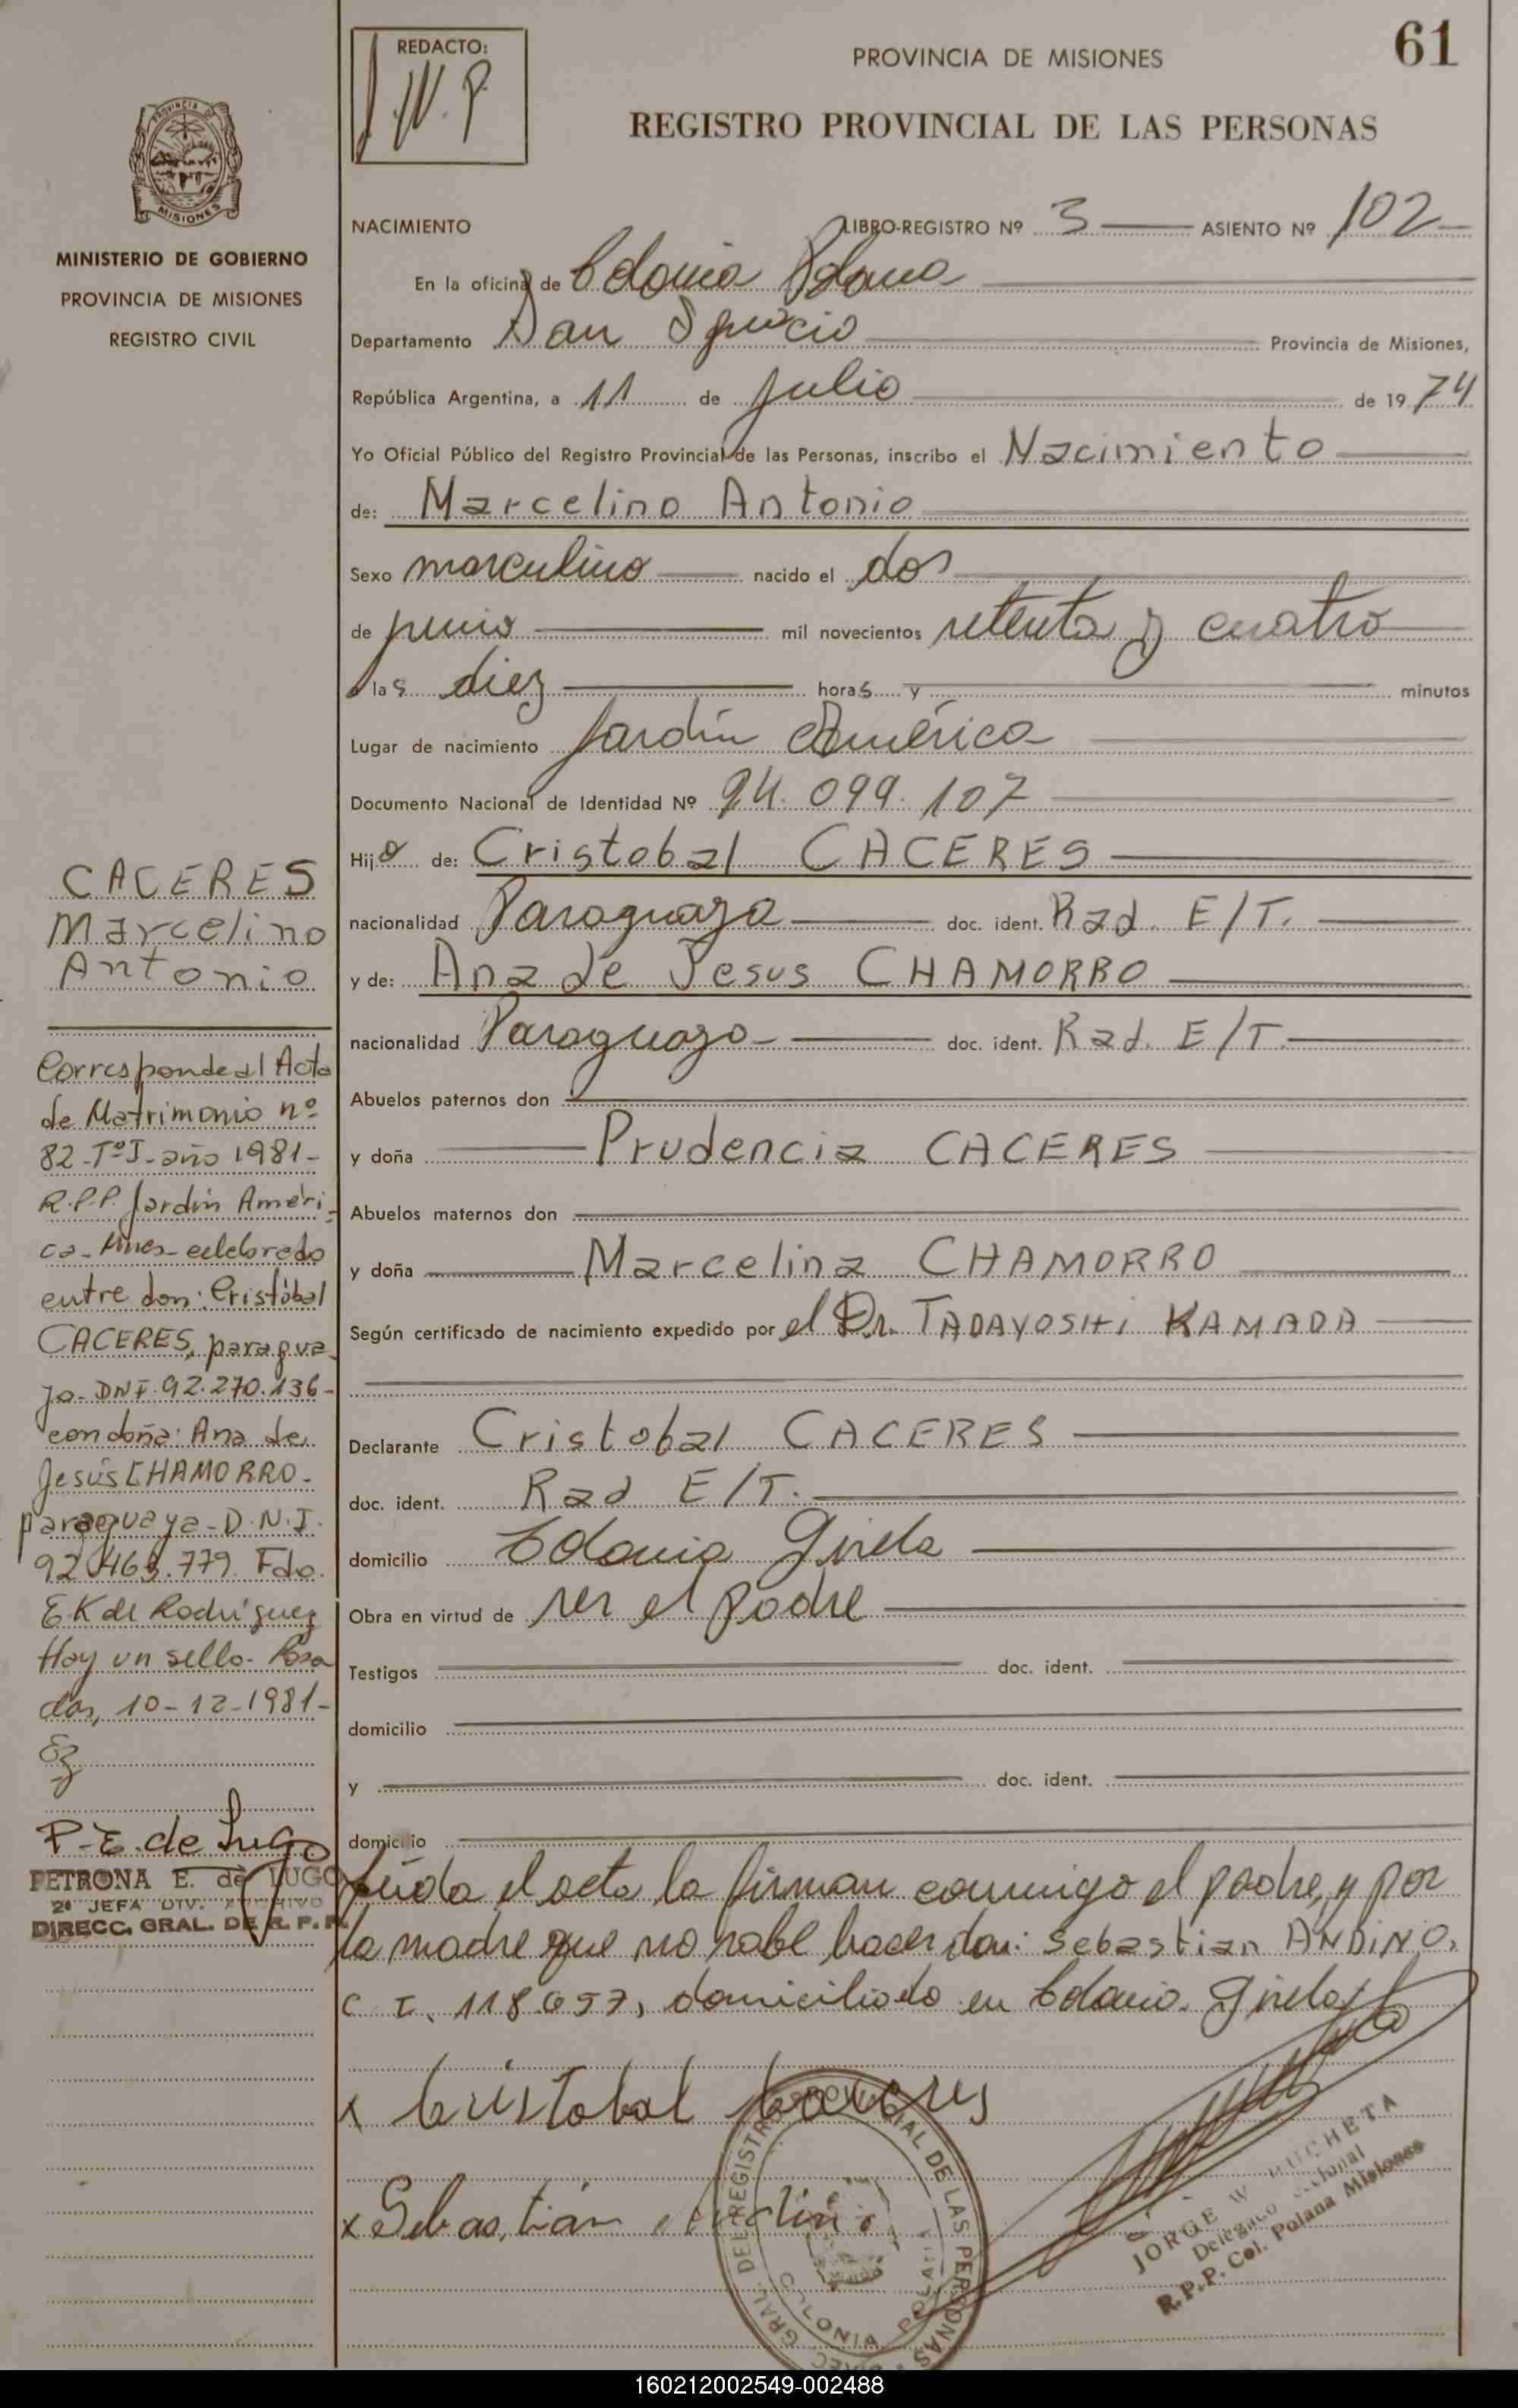 61
REDACTO:
J.W.P
PROVINCIA DE MISIONES
REGISTRO PROVINCIAL DE LAS PERSONAS
PROVINCIA DE
MISIONES
MINISTERIO DE GOBIERNO
PROVINCIA DE MISIONES
REGISTRO CIVIL
NACIMIENTO LIBRO-REGISTRO Nº 3 ASIENTO Nº 102
En la oficina de Colonia Polana
Departamento San Ignacio Provincia de Misiones,
República Argentina, a 11 de julio de 19 74
Yo Oficial Público del Registro Provincial de las Personas, inscribo el Nacimiento
de: Marcelino Antonio
Sexo masculino nacido el dos
de junio mil novecientos setenta y cuatro
a las diez horas y minutos
Lugar de nacimiento Jardín América
Documento Nacional de Identidad Nº 24.099.107
Hijo de: Cristobal CACERES
nacionalidad Paraguaya doc. ident. Rad. E/T.
y de: Ana de Jesus CHAMORRO
nacionalidad Paraguaya doc. ident. Rad. E/T.
Abuelos paternos don
y doña Prudencia CACERES
Abuelos maternos don
y doña Marcelina CHAMORRO
Según certificado de nacimiento expedido por el Dr. TADAYOSHI KAMADA
Declarante Cristobal CACERES
doc. ident. Rad E/T.
domicilio Colonia Gisela
Obra en virtud de ser el padre
Testigos doc. ident.
domicilio
y doc. ident.
domicilio
Leída el acta la firman conmigo el padre, y por
la madre que no sabe hacer don: Sebastian ANDINO,
C I. 118697, domiciliado en Colonia Gisela
x Cristobal Caceres
x Sebastián Andino
CACERES
Marcelino
Antonio
Corresponde al Acta
de Matrimonio nº
82-TºI-año 1981-
R.P.P. Jardín Améri-
ca-Mnes-celebrado
entre don: Cristóbal
CACERES, paragua-
yo-DNI.92.270.136-
con doña: Ana de
Jesús CHAMORRO-
paraguaya-D.N.I.
92.463.779. Fdo.
E.K de Rodríguez
Hay un sello- Posa
das, 10-12-1981-
P.E. de Lugo
PETRONA E. de LUGO
2ª JEFA DIV. ARCHIVO
DIRECC. GRAL. DE R. P. P.
DIREC. GRAL. DEL REGISTRO PROVINCIAL DE LAS PERSONAS
COLONIA POLANA
JORGE W
Delegado Seccional
R.P.P. Col. Polana Misiones
160212002549-002488